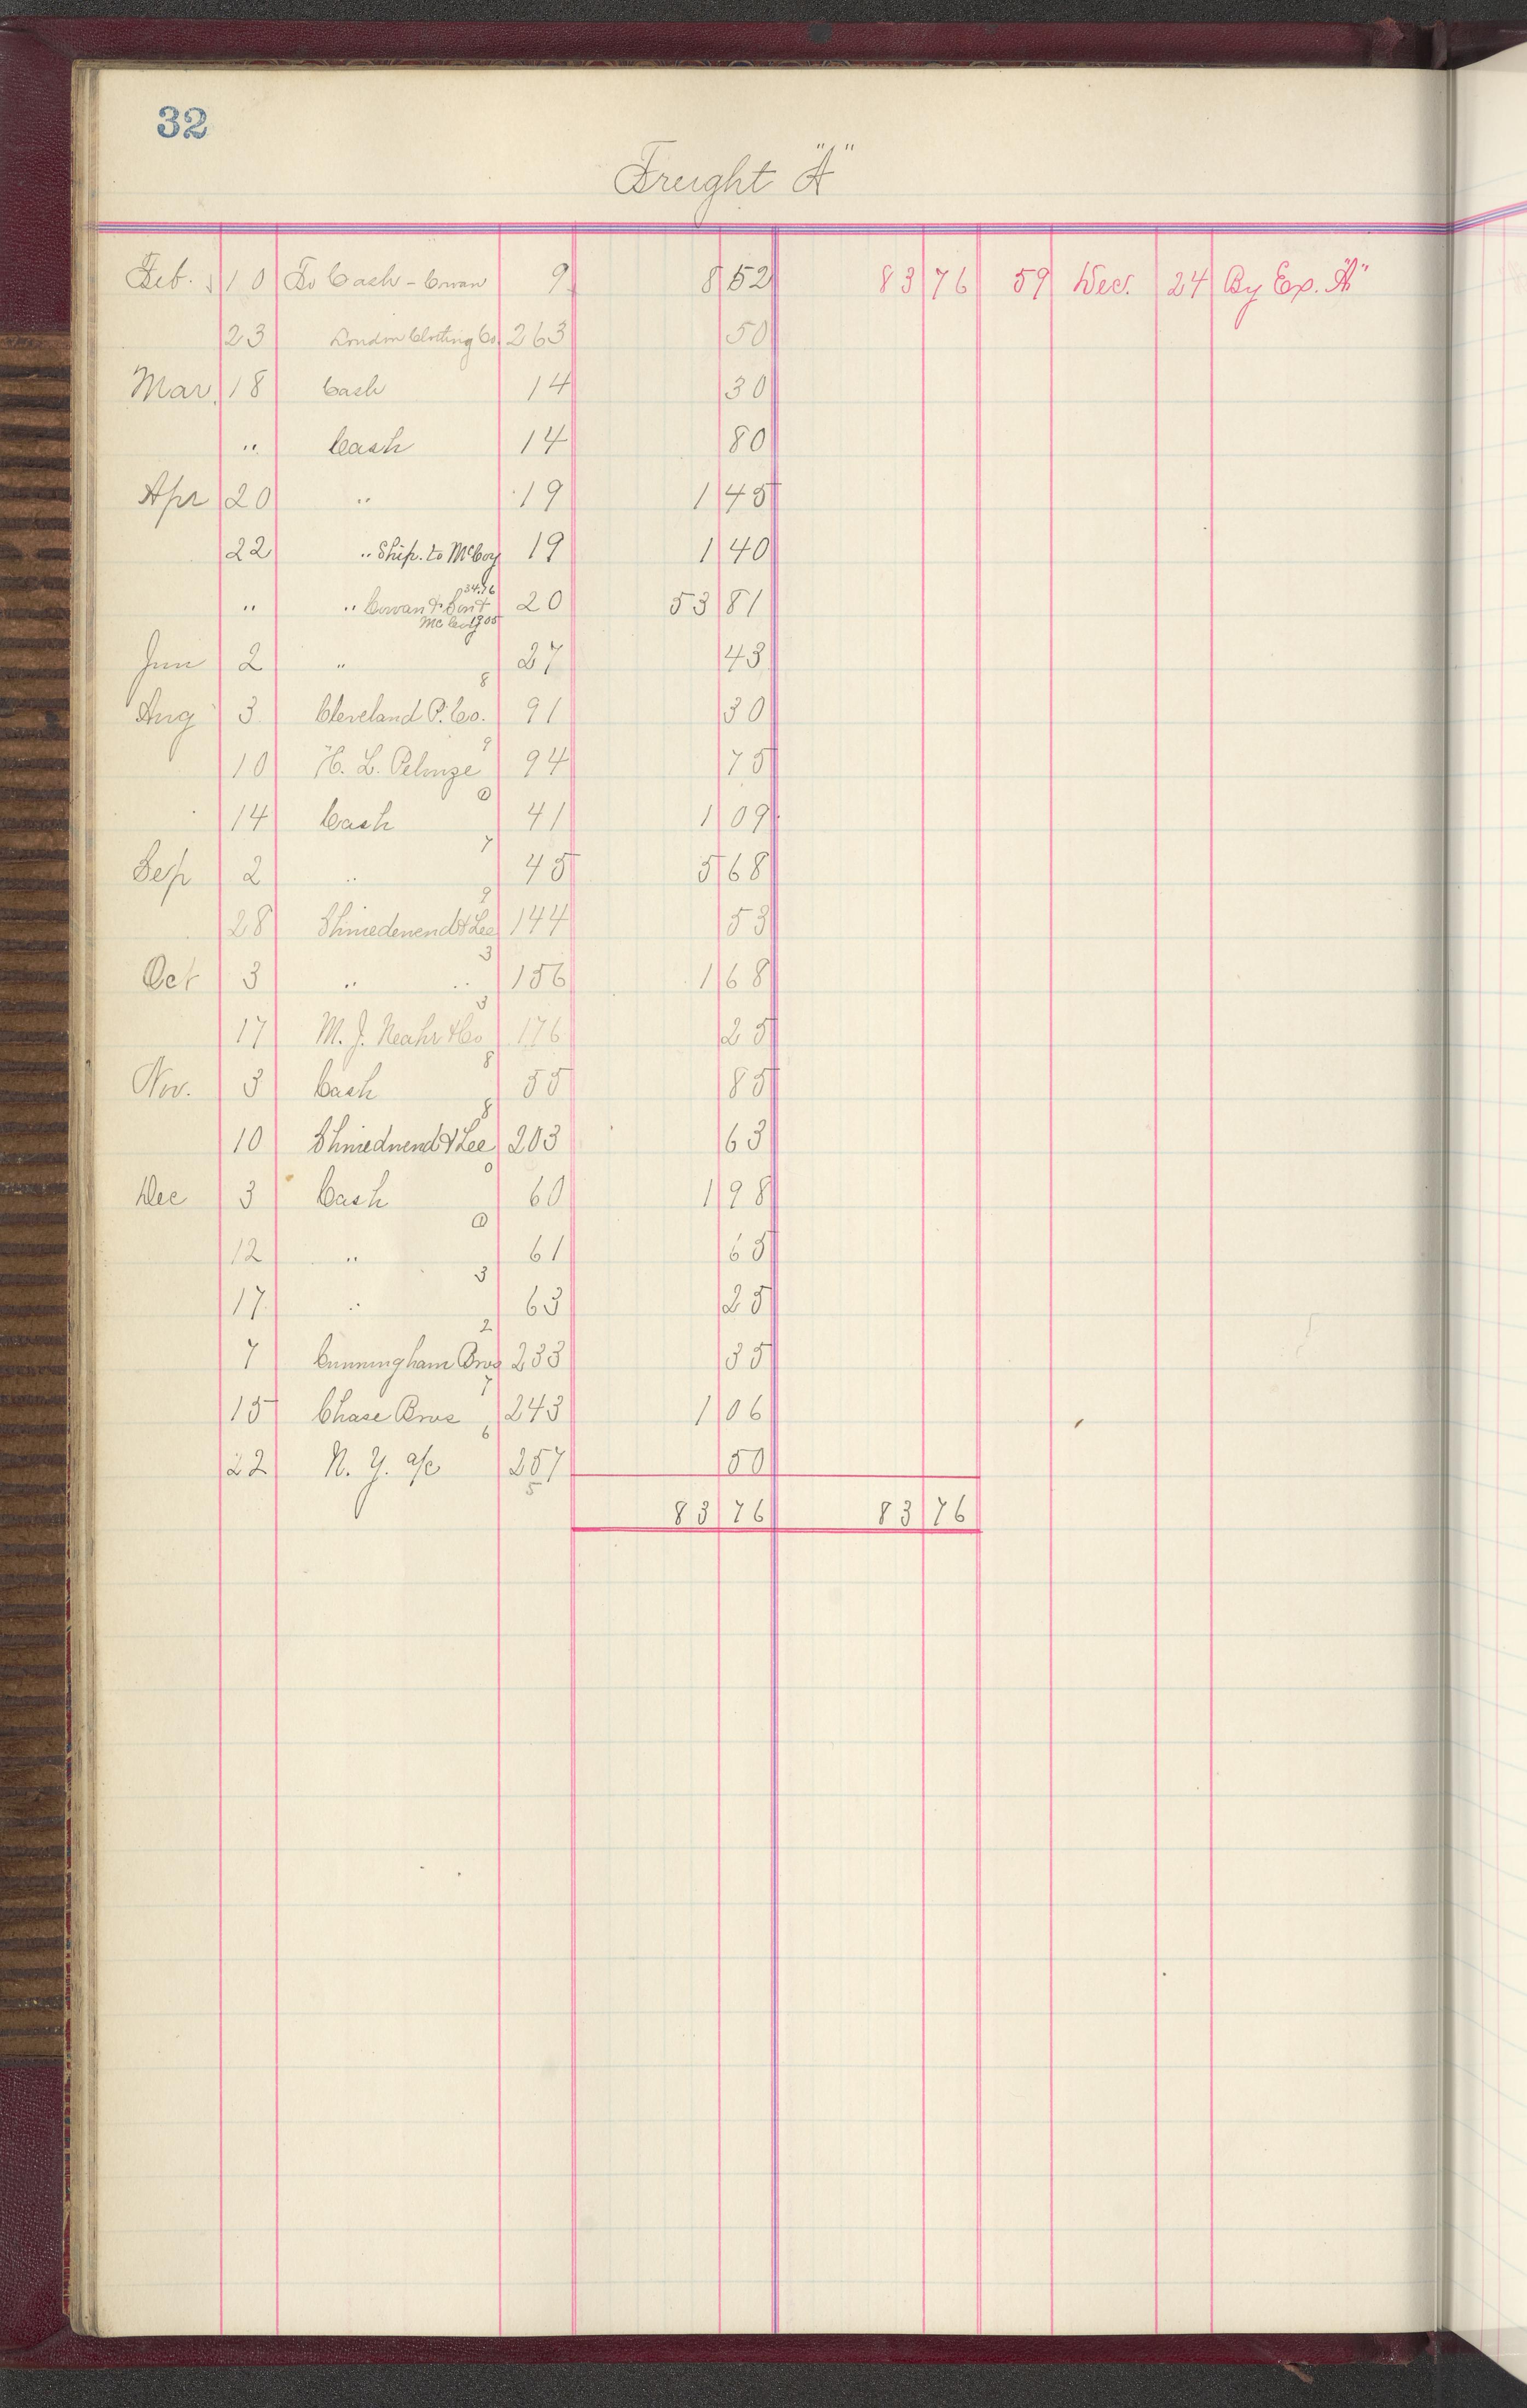 32
Freight "A"
Feb. 10 To Cash - Cowan 9 8 52 83 76 59 Dec. 24 By Ex. "A"
23 London Clothing Co. 263 50
Mar. 18 Cash 14 30
" Cash 14 80
Apr 20 " 19 1 45
22 " Ship. to McCoy 19 1 40
34.76
" " Cowan & 20 53 81
McCoy 1905
Jun 2 " 27 43
8
Aug 3 Cleveland P. Co. 91 30
9
10 H. L. Pelouze 94 75
0
14 Cash 41 1 09
7
Sep 2 " 45 5 68
9
28 Shniedenend & Lee 144 53
3
Oct 3 " " 156 1 68
3
17 M. J. Neahr & Co 176 25
8
Nov. 3 Cash 55 85
8
10 Shniednend & Lee 203 63
0
Dec 3 Cash 60 1 98
0
12 " 61 65
3
17 " 63 25
2
7 Cunningham Bros 233 35
7
15 Chase Bros 243 1 06
6
22 N. Y. a/c 257 50
5
83 76 83 76